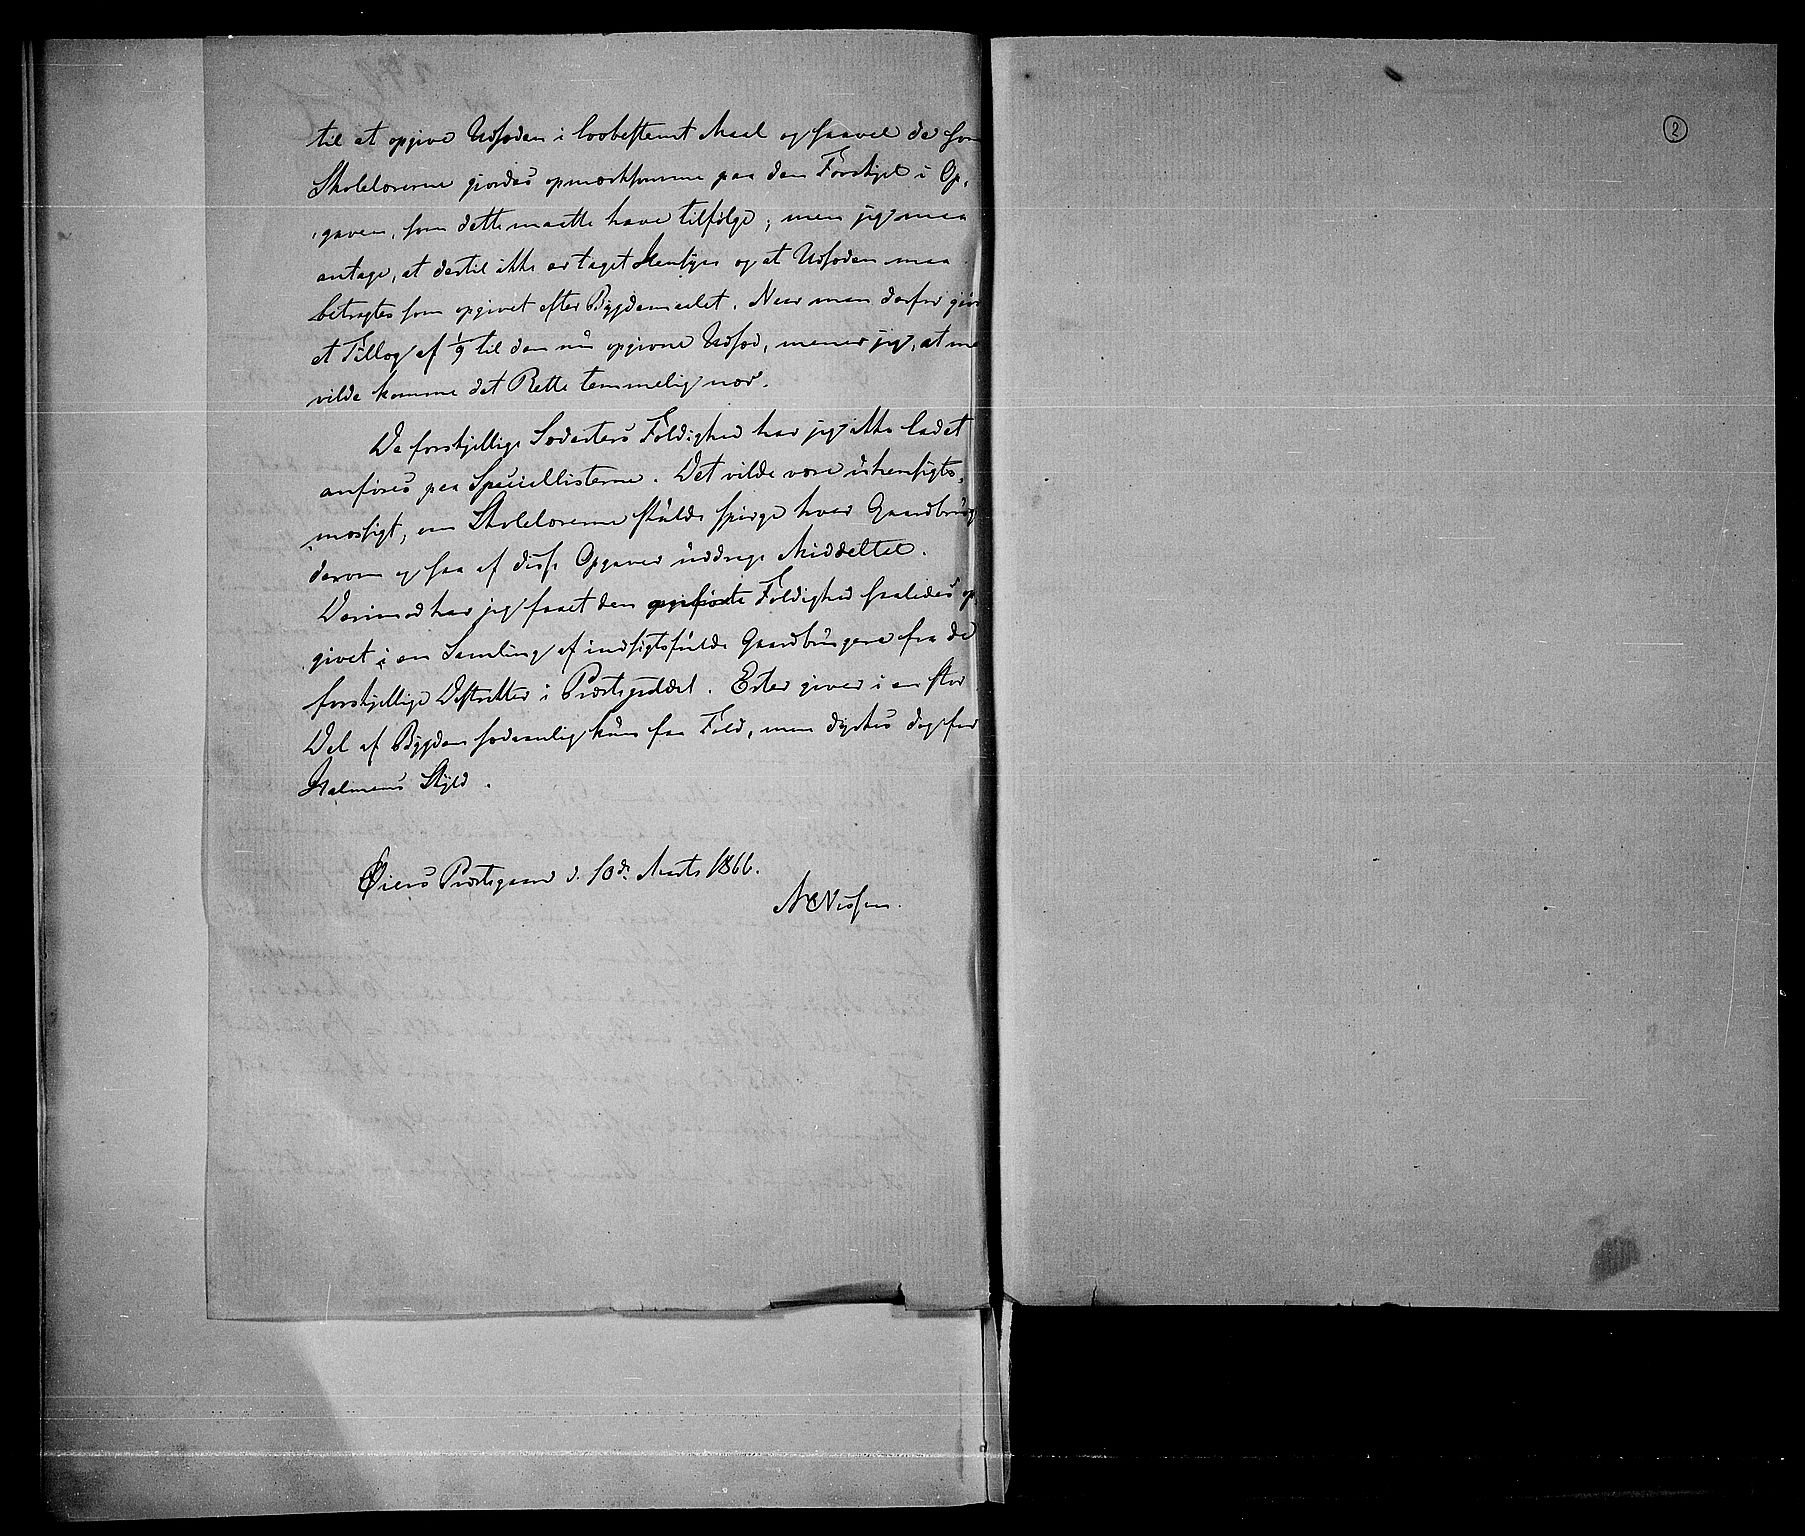 til at opgive Udsæden i lovbestemt Maal og saavel de som
Skolelærerne gjordes opmærksomme paa den Forskjel i Op-
gaven, som dette maatte have tilfølge; men jeg maa
antage, at dertil ikke er taget Hensyn og at Udsæden maa
betragtes som opgivet efter Bygdemaalet. Naar man derfor gjør
et Tillæg af 1/9 til den nu opgivne Udsæd, mener jeg, at m
vilde komme det Rette temmelig nær.
De forskjellige Sædarters Foldighed har jeg ikke ladet
anføres paa Speciallisterne. Det vilde være uhensigts-
mæssigt, om Skolelærerne skulde spørge hver Gaardbrug
derom og saa af disse Opgaver uddrage Middeltal.
Derimod har jeg faaet den Foldighed saaledes op
givet i en Samling af indsigtsfulde Gaardbrugere fra de
forskjellige Distrikter i Præstegjeldet. Erter giver i en stor
Del af Bygden sædvanlig kun faa Fold, men dyrkes dog for
Halmens Skyld.
Øiers Præstegaard d. 10de Marts 1866.
Nissen.
2